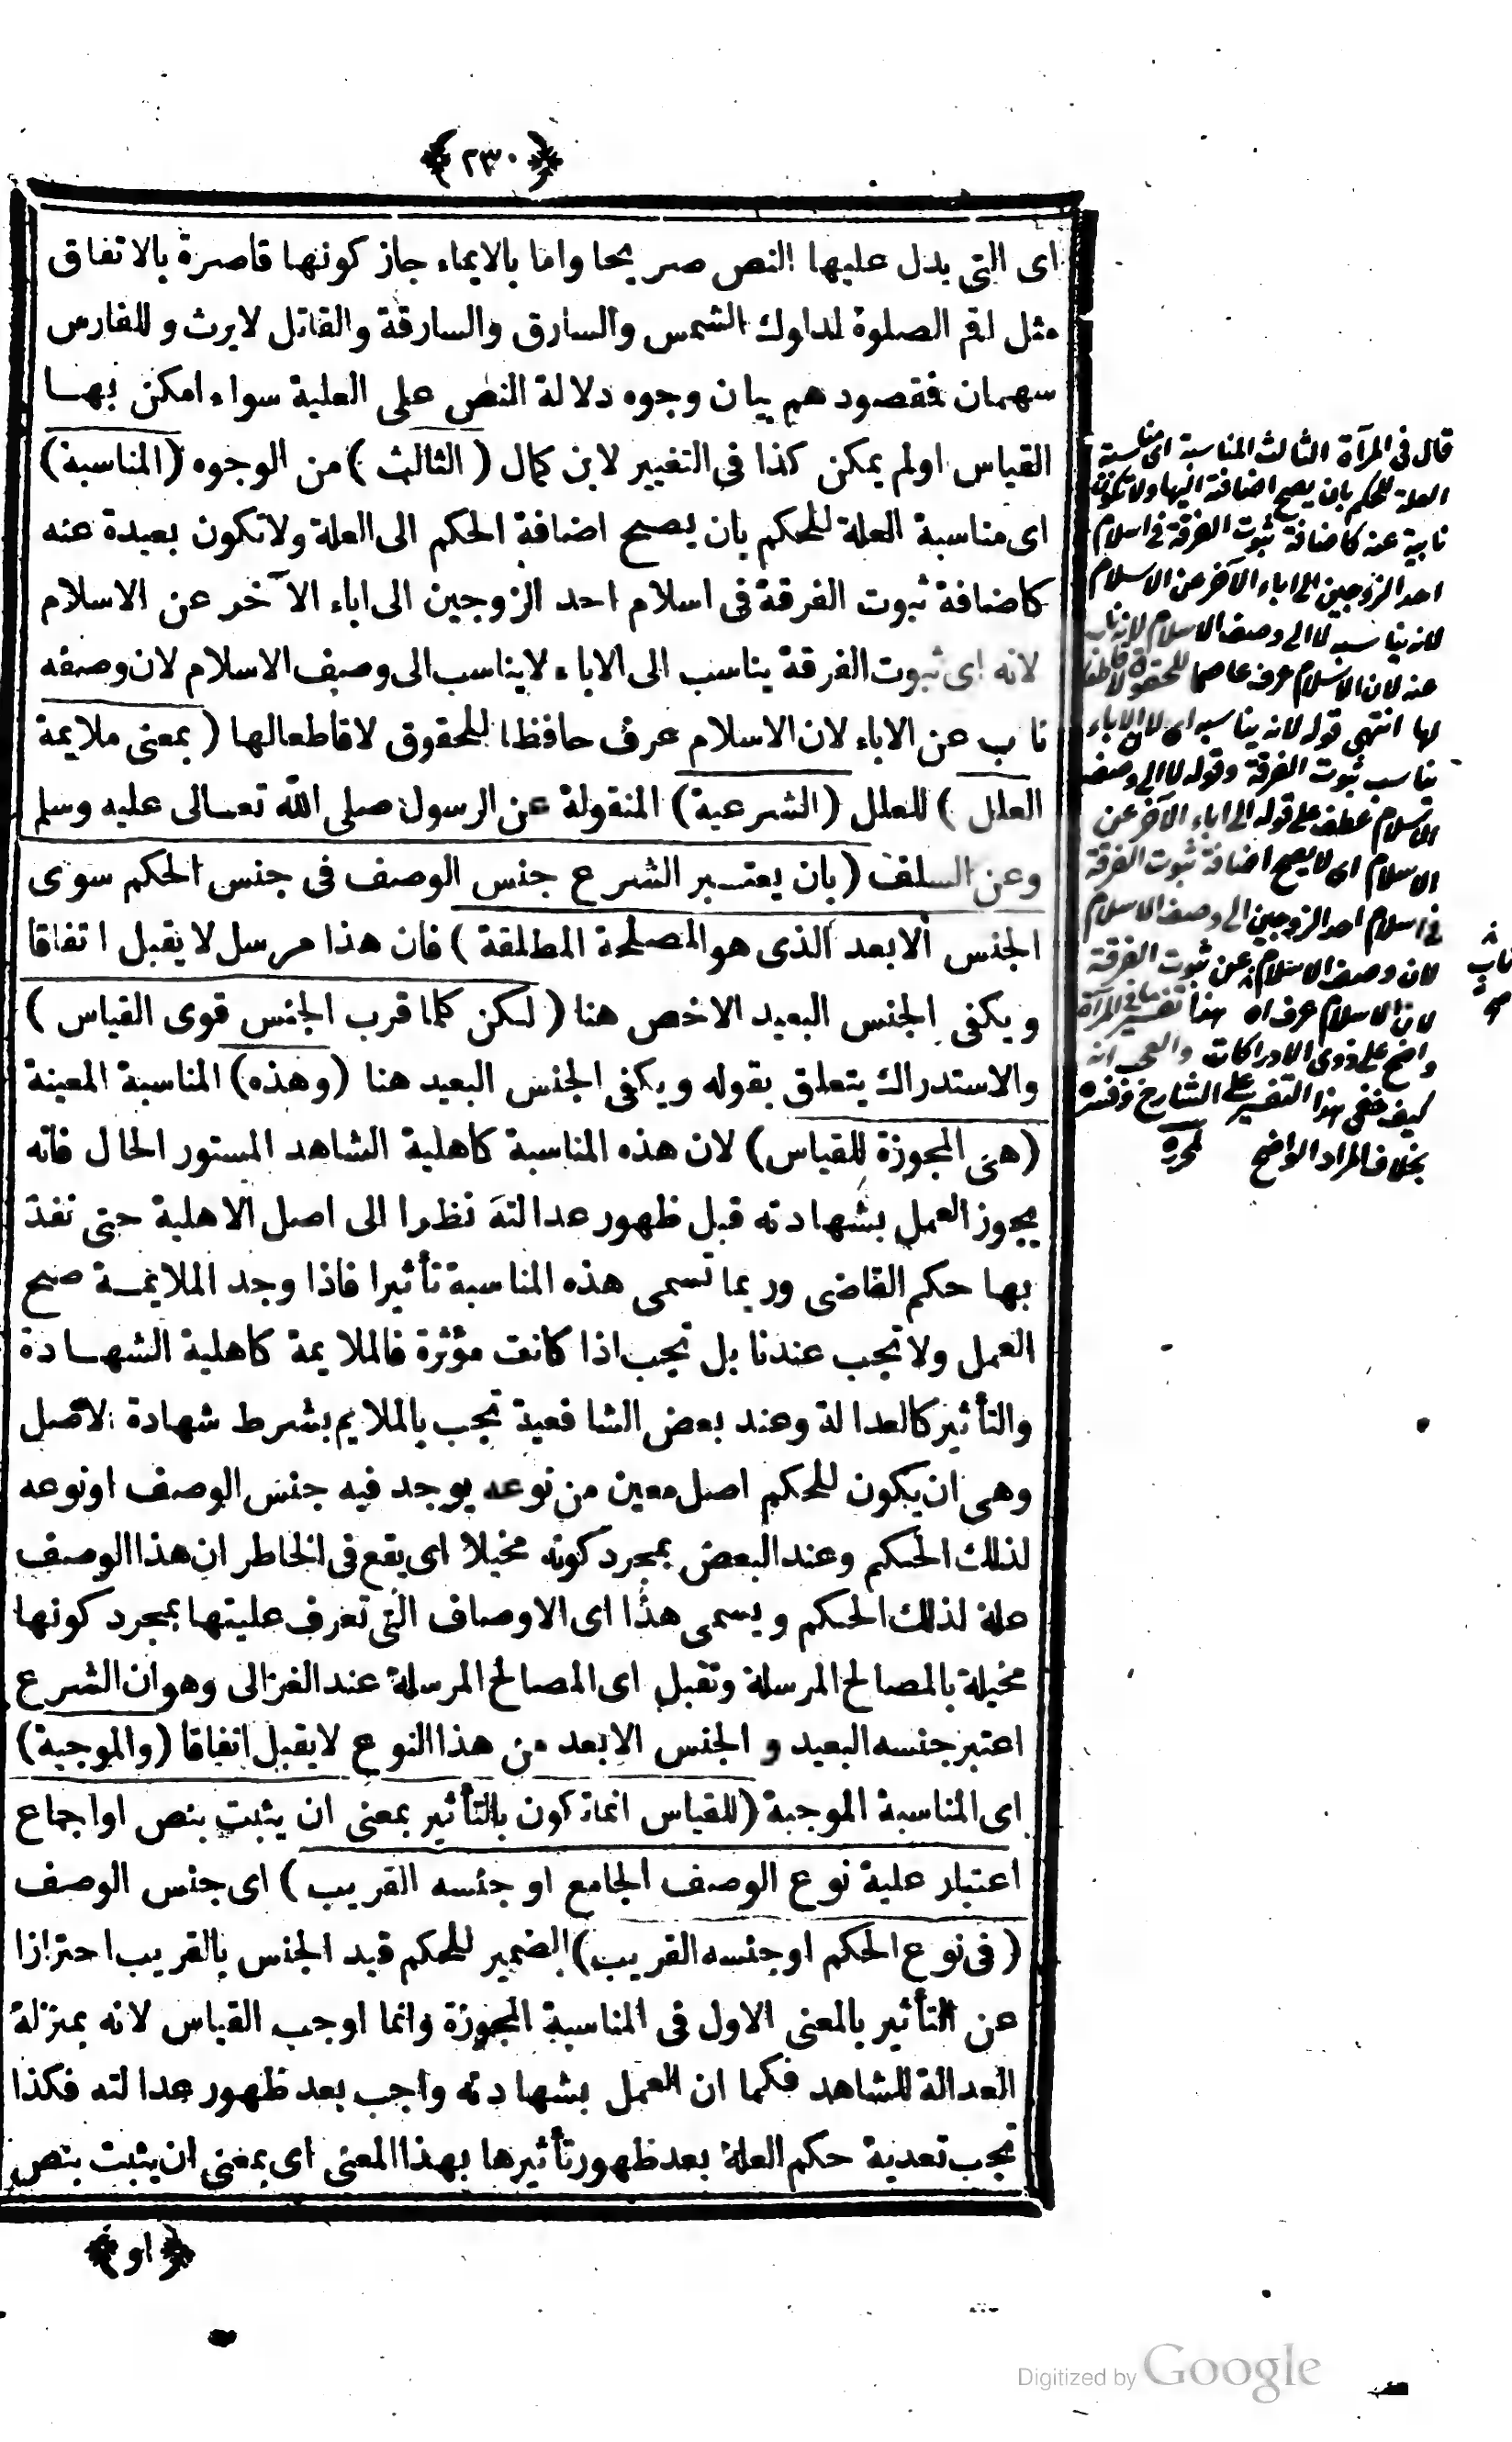 ﴿٢٣٠﴾
اى التى يدل عليها النص صريحا واما بالايماء جاز كونها قاصرة بالاتفاق
مثل اقم الصلوة لدلوك الشمس والسارق والسارقة والقاتل لايرث وللفارس
سهمان فمقصودهم بيان وجوه دلالة النص على العلية سواء امكن بهـا
القياس اولم يمكن كذا فى التغيير لابن كمال (الثالث) من الوجوه (المناسبة)
اى مناسبة العلة للحكم بان يصح اضافة الحكم الى العلة ولاتكون بعيدة عنه
كاضافة ثبوت الفرقة فى اسلام احد الزوجين الى اباء الآخر عن الاسلام
لانه اى ثبوت الفرقة يناسب الى الاباء لايناسب الى وصف الاسلام لان وصفه
ناب عن الاباء لان الاسلام عرف حافظا للحقوق لاقاطعالها (بمعنى ملايمة
العلل) للعلل (الشرعية) المنقولة عن الرسول صلى الله تعالى عليه وسلم
وعن السلف (بان يعتبر الشرع جنس الوصف فى جنس الحكم سوى
الجنس الابعد الذى هو المصلحة المطلقة) فان هذا مرسل لايقبل اتفاقا
ويكفى الجنس البعيد الاخص هنا (لكن كلما قرب الجنس قوى القياس)
والاستدراك يتعلق بقوله ويكفى الجنس البعيد هنا (وهذه) المناسبة المعينة
(هى المجوزة للقياس) لان هذه المناسبة كاهلية الشاهد المستور الحال فانه
يجوز العمل بشهادته قبل ظهور عدالته نظرا الى اصل الاهلية حتى نفذ
بها حكم القاضى وربما تسمى هذه المناسبة تأثيرا فاذا وجد الملايمة صح
العمل ولاتجب عندنا بل تجب اذا كانت مؤثرة فالملايمة كاهلية الشهـادة
والتأثير كالعدالة وعند بعض الشافعية تجب بالملايم بشرط شهادة الاصل
وهى ان يكون للحكم اصل معين من نوعه يوجد فيه جنس الوصف اونوعه
لذلك الحكم وعند البعض بمجرد كونه مخيلا اى يقع فى الخاطر ان هذا الوصف
علة لذلك الحكم ويسمى هذا اى الاوصاف التى تعرف عليتها بمجرد كونها
مخيلة بالمصالح المرسلة وتقبل اى المصالح المرسلة عند الغزالى وهو ان الشرع
اعتبر جنسه البعيد و الجنس الابعد من هذا النوع لايقبل اتفاقا (والموجبة)
اى المناسبة الموجبة (للقياس انما تكون بالتأثير بمعنى ان يثبت بنص اواجماع
اعتبار علية نوع الوصف الجامع او جنسه القريب) اى جنس الوصف
(فى نوع الحكم اوجنسه القريب) الضمير للحكم قيد الجنس بالقريب احترازا
عن التأثير بالمعنى الاول فى المناسبة المجوزة وانما اوجب القياس لانه بمنزلة
العدالة للشاهد فكما ان العمل بشهادته واجب بعد ظهور عدالته فكذا
تجب تعدية حكم العلة بعد ظهور تأثيرها بهذا المعنى اى بمعنى ان يثبت بنص
﴿او﴾
قال فى المرآة الثالث المناسبة اى مناسبة
العلة للحكم بان يصح اضافته اليها ولا تكون
نابية عنه كاضافة ثبوت الفرقة فى اسلام
احد الزوجين الى اباء الآخر عن الاسلام
لانه يناسبه لا الى وصف الاسلام لانه ناب
عنه لان الاسلام عرف عاصما للحقوق لا قاطعا
لها انتهى قوله لانه يناسبه اى لان الاباء
يناسب ثبوت الفرقة وقوله لا الى وصف
الاسلام عطف على قوله الى اباء الآخر عن
الاسلام اى لا يصح اضافة ثبوت الفرقة
فى اسلام احد الزوجين الى وصف الاسلام
لان وصف الاسلام ناب عن ثبوت الفرقة
لان الاسلام عرف اه هذا تفسير ما فى المرآة
واضح على ذوى الادراكات والعجب انه
كيف خفى هذا التفسير على الشارح وفسره
بخلاف المراد الواضح لمحرره
Digitized by Google